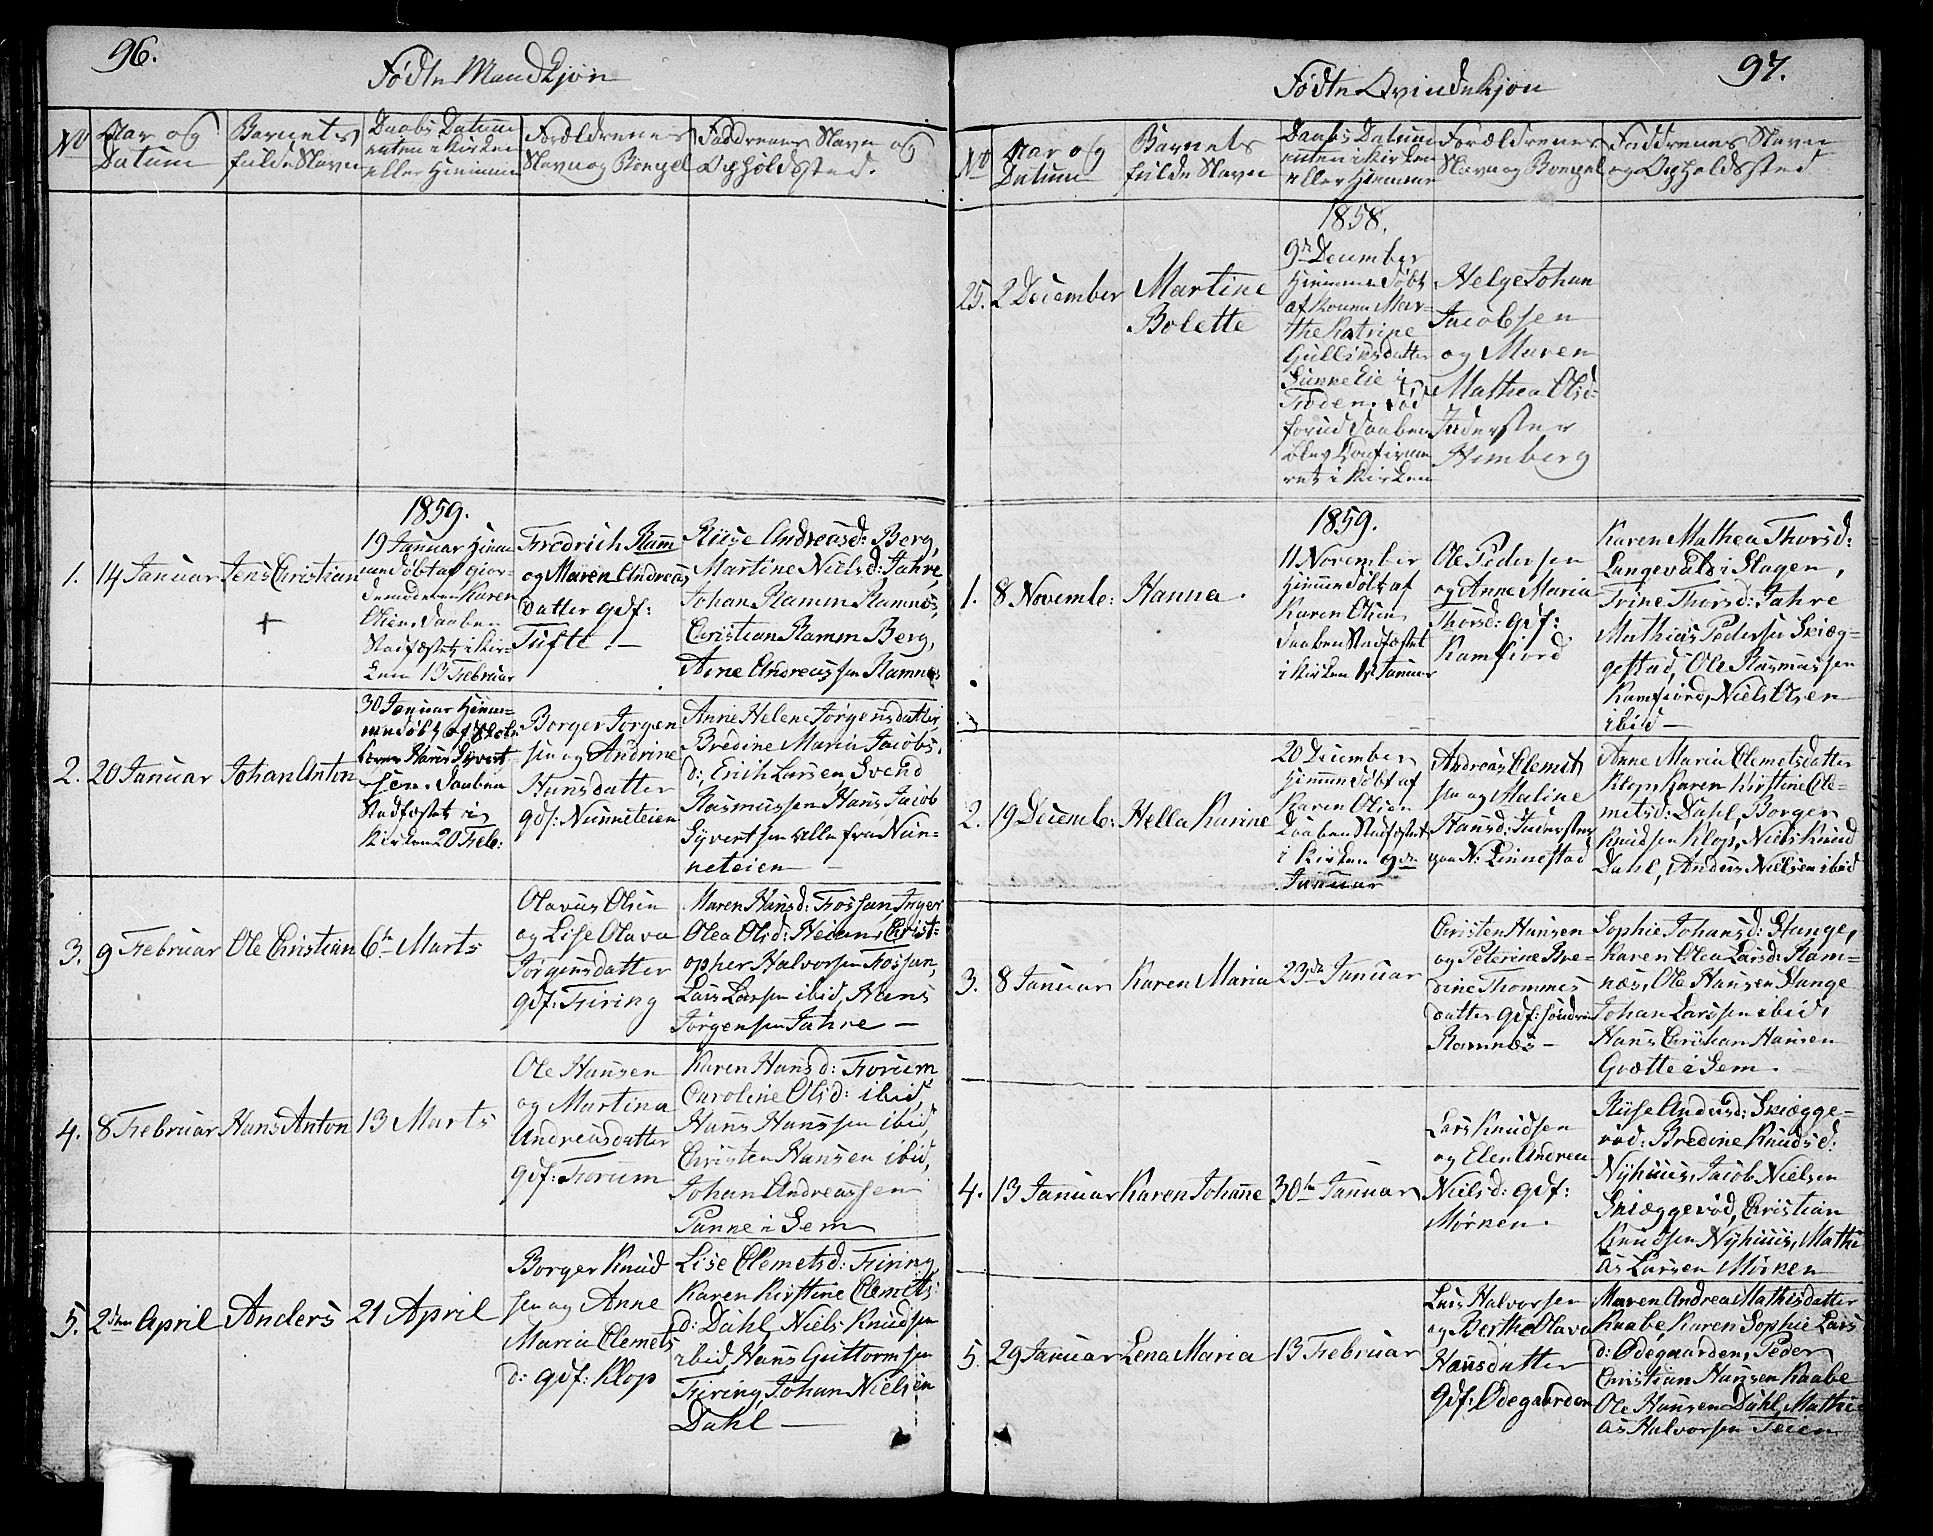 96.
Födte Mandkjøn
No
Aar og
Datum
Barnets
fulde Navn
Daabs Datum
enten i Kirken
eller Hiemme
Forældrenes
Navn og Boepel
Faddrenes Navn og
Opholdssted.
1859.
1.
14 Januar
Jens Christian
+
19 Januar Hiem-
medøbt af Gior-
demoderen Karen
Olsen, Daaben
Stadfæstet i Kir-
ken 13 Februar
Fredrich Ramm
og Maren Andreas
datter gdf:
Tufte. —
Riise Andreasd: Berg,
Martine Nielsd: Jahre,
Johan Ramm Ramnes,
Christian Ramm Berg,
Arne Andreassen Ramnes
2.
20 Januar
Johan Anton
30 Januar Hiem-
medøbt af Skole
Lærer Hans Syvert
sen. Daaben
Stadfæstet i
Kirken 20 Feb:
Borger Jørgen
sen og Andrine
Hansdatter
gdf: Nunneteien
Anne Helene Jørgensdatter,
Bredine Maria Jacobs
d:, Erich Larsen, Svend
Rasmussen, Hans Jacob
Syvertsen alle fra Nun-
neteien —
3.
9 Februar
Ole Christian
6te Marts
Olavus Olsen
og Lise Olava
Jørgensdatter
gdf: Firing
Maren Hansd: Fossan, Inger
Olea Olsd: Heian, Christ-
opher Halvorsen Fossan,
Lars Larsen ibid, Hans
Jørgensen Jahre —
4.
8 Februar
Hans Anton
13 Marts
Ole Hansen
og Martina
Andreasdatter
gdf: Forum
Karen Hansd: Forum
Caroline Olsd: ibid,
Hans Hanssen ibid,
Christen Hansen ibid,
Johan Andreassen
Panne i Sem
5.
2den April
Anders
21 April
Borger Knud
sen og Anne
Maria Clemets
d: gdf: Klop
Lise Clemetsd: Firing
Karen Kirstine Clemets
d: Dahl, Niels Knudsen
ibid, Hans Guttormsen
Firing, Johan Nielsen
Dahl —
97.
Födte Qvindekjøn
No
Aar og
Datum
Barnets
fulde Navn
Daabs Datum
enten i Kirken
eller Hiemme
Forældrenes
Navn og Boepel
Faddrenes Navn
og Opholdssted
1858.
25.
2 December
Martine
Bolette
9de December
Hiemmedøbt
af Konen Mar-
the Katrine
Gulliksdatter
Sunneeie i
Foden. Død
forud Daaben
blev Confirme
ret i Kirken
Helge Johan
Jacobsen
og Maren
Mathea Olsd:
Inderster
Himberg
1859.
1.
8 Novemb:
Hanna.
11 November
Hiemmedøbt af
Karen Olsen
Daaben Stadfæstet
i Kirken 1 Januar
Ole Pedersen
og Anne Maria
Thorsd: gdf:
Ramfiord
Karen Mathea Thorsd:
Langevals i Slagen,
Trine Thorsd: Jahre
Mathias Pedersen Skiæg-
gestad, Ole Rasmussen
Ramfiord, Niels Olsen
ibid —
2.
19 Decemb:
Hella Karine
20 December
Hiemmedøbt af
Karen Olsen
Daaben Stadfæstet
i Kirken 9de
Januar
Andreas Clemet
sen og Maline
Hansd: Inderster
paa N: Linnestad
Anne Maria Clemetsdatter
Klop, Karen Kirstine Cle-
metsd: Dahl, Borger
Knudsen Klop, Niels Knuds
Dahl, Anders Nielsen ibid
3.
8 Januar
Karen Maria
23de Januar
Christen Hansen
og Peterine Bre-
dine Thommes
datter gdf: søndre
Ramnæs —
Sophie Johansd: Stange,
Karen Olea Larsd: Ram-
næs, Ole Hansen Stange
Johan Larssen ibid,
Hans Christian Hansen
Grætte i Sem. —
4.
13 Januar
Karen Johanne
30te Januar
Lars Knudsen
og Elen Andrea
Nielsd: gdf:
Mörken.
Riise Andersd: Skiægge-
rød: Bredine Knudsd:
Nÿhuus, Jacob Nielsen
Skiæggerød, Christian
Knudsen Nÿhuus, Mathi
as Larsen Mörken
5.
29 Januar
Lena Maria
13 Februar
Lars Halvorsen
og Berthe Olava
Hansdatter
gdf: Ødegaarden
Maren Andrea Mathisdatter
Raabe, Karen Sophie Lars
d: Ødegaarden, Peder
Christian Hansen Raabe
Ole Hansen Dahl, Mathi
as Halvorsen Teien